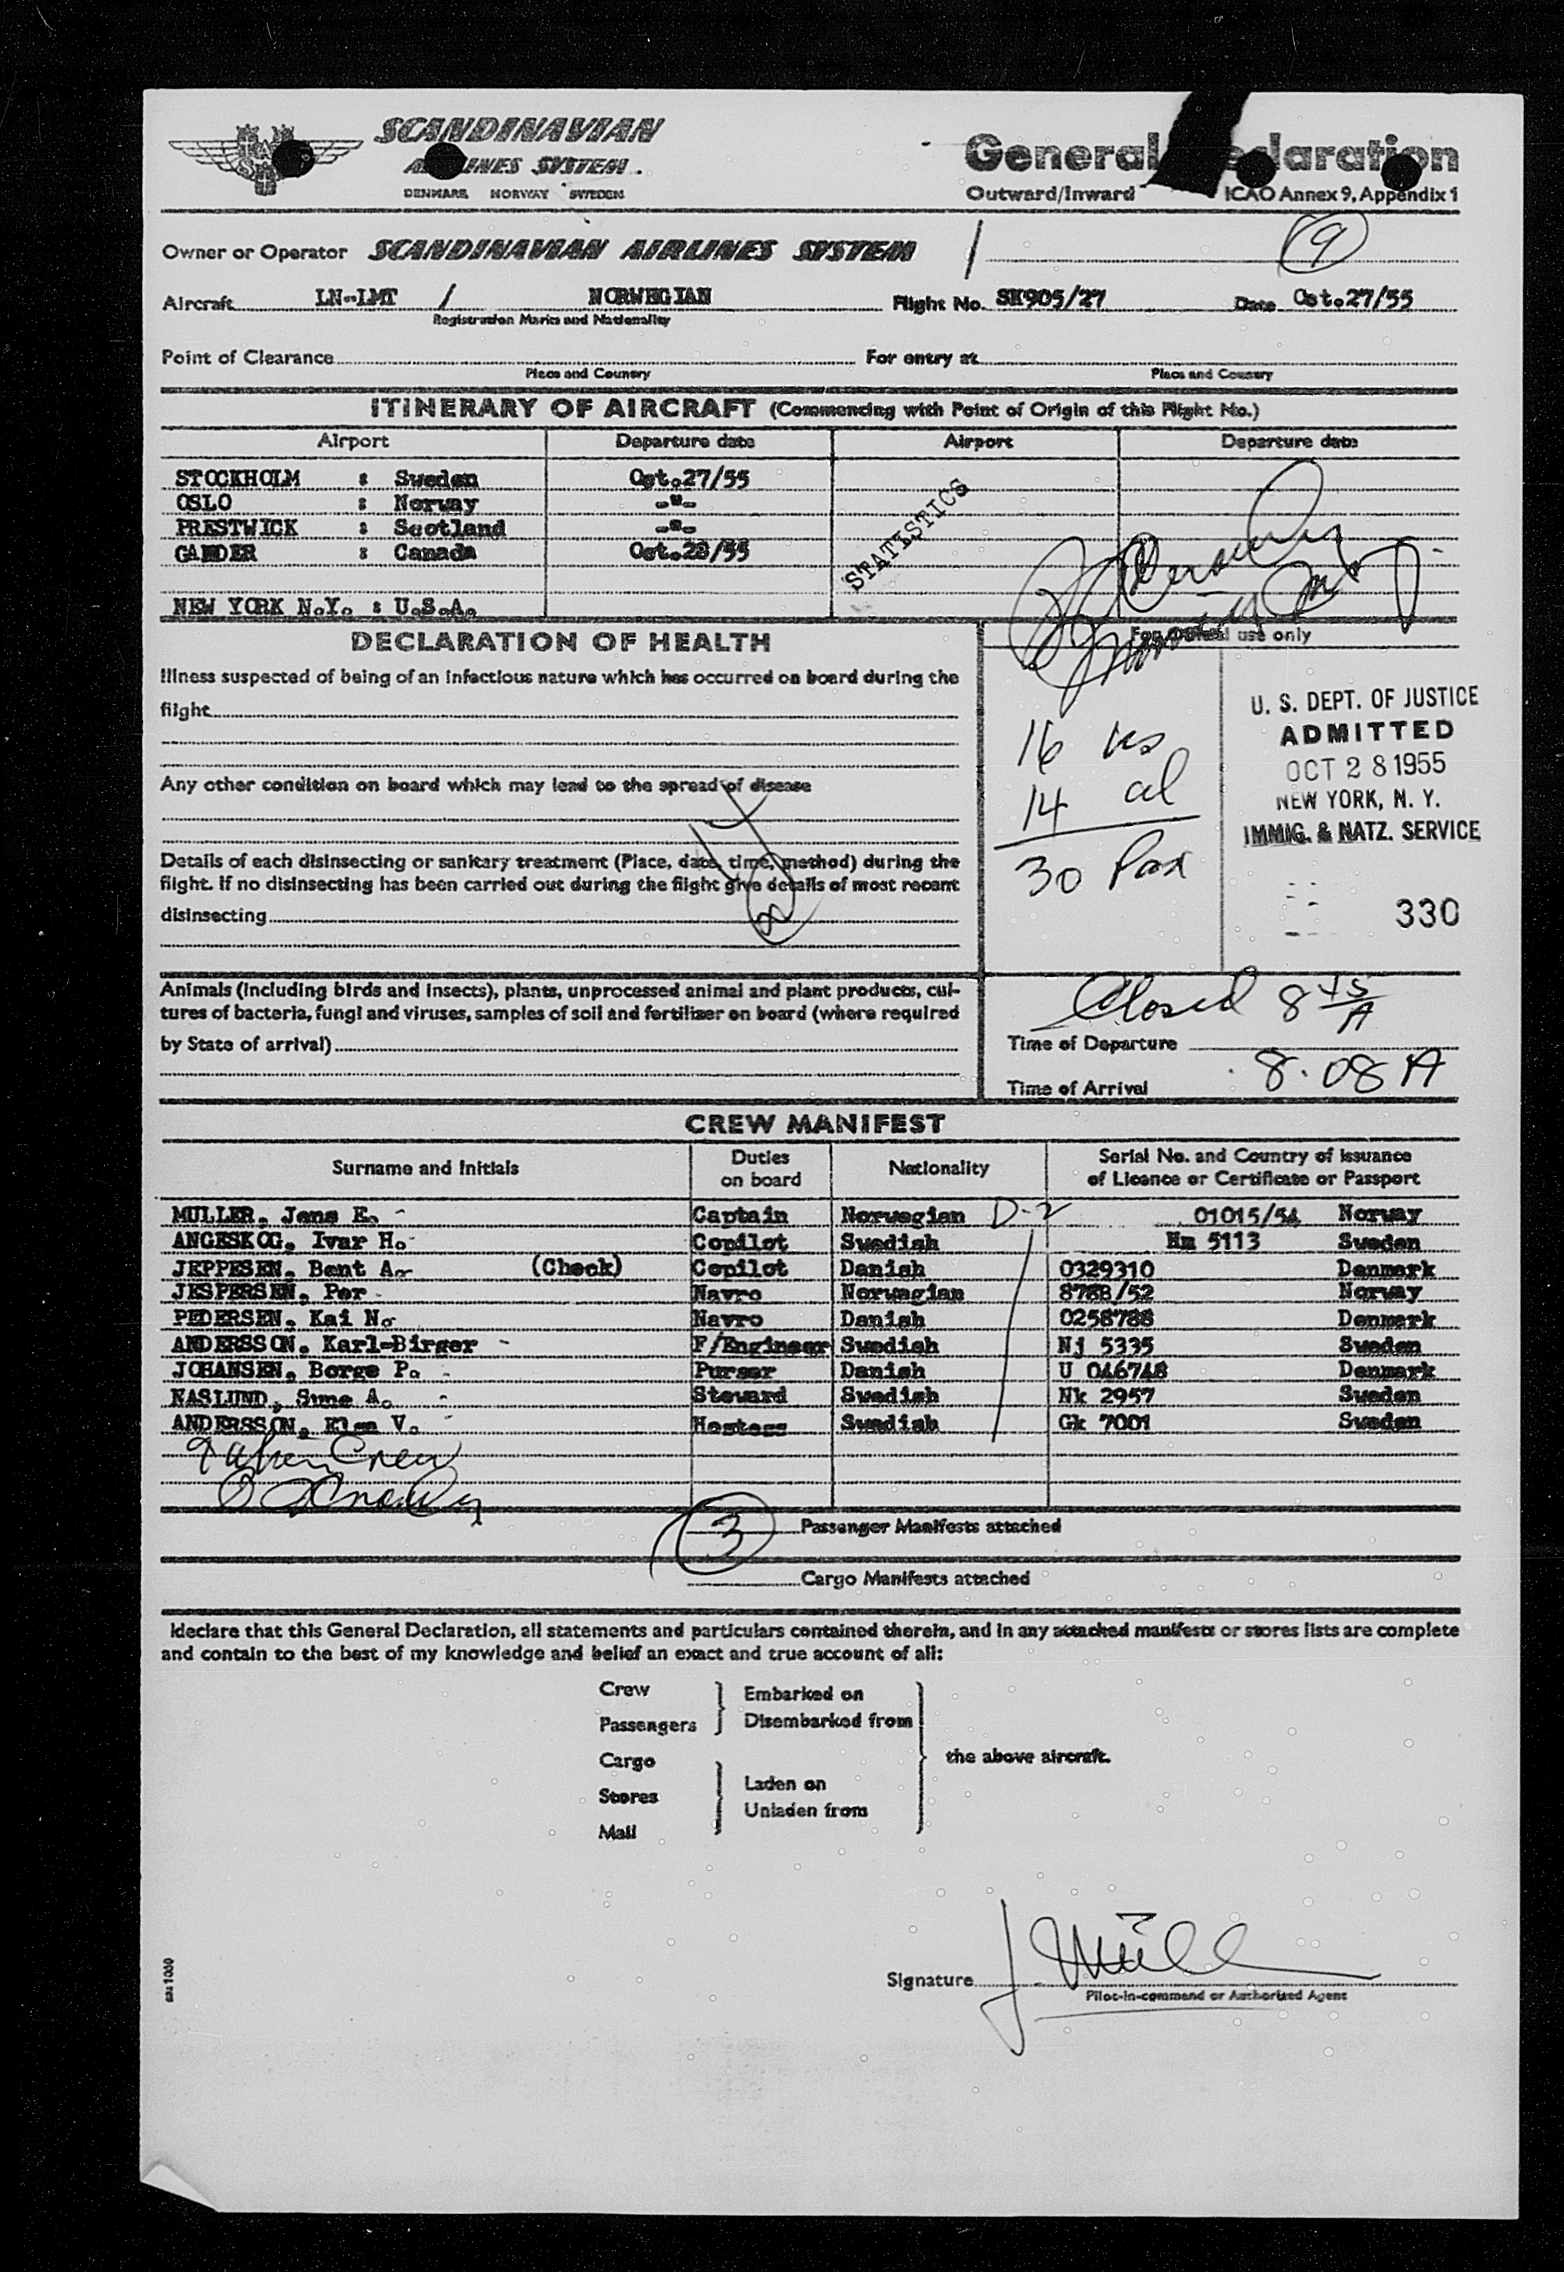 SCANDINAVIAN
AIRLINES SYSTEM
DENMARK NORWAY SWEDEN
General Declaration
Outward/Inward ICAO Annex 9, Appendix 1
9
Owner or Operator SCANDINAVIAN AIRLINES SYSTEM /
Aircraft LN-LMT / NORWEGIAN Flight No. SK905/27 Date Oct.27/55
Registration Marks and Nationality
Point of Clearance For entry at
Place and Country Place and Country
ITINERARY OF AIRCRAFT (Commencing with Point of Origin of this Flight No.)
Airport Departure date Airport Departure date
STOCKHOLM : Sweden Oct.27/55
OSLO : Norway -"-
PRESTWICK : Scotland -"-
GANDER : Canada Oct.28/55
STATISTICS
NEW YORK N.Y. : U.S.A.
DECLARATION OF HEALTH
For official use only
Illness suspected of being of an infectious nature which has occurred on board during the
flight
U. S. DEPT. OF JUSTICE
ADMITTED
OCT 28 1955
NEW YORK, N. Y.
IMMIG. & NATZ. SERVICE
330
16 us
14 al
30 Pax
Any other condition on board which may lead to the spread of disease
Details of each disinsecting or sanitary treatment (Place, date, time, method) during the
flight. If no disinsecting has been carried out during the flight give details of most recent
disinsecting
Animals (including birds and insects), plants, unprocessed animal and plant products, cul-
tures of bacteria, fungi and viruses, samples of soil and fertilizer on board (where required
by State of arrival)
Closed 8 45 A
Time of Departure
Time of Arrival 8.08 A
CREW MANIFEST
Surname and Initials Duties on board Nationality Serial No. and Country of Issuance of Licence or Certificate or Passport
MULLER, Jens E. - Captain Norwegian D-2 01015/54 Norway
ANGESKOG, Ivar H. Copilot Swedish Hm 5113 Sweden
JEPPESEN, Bent A. (Check) Copilot Danish 0329310 Denmark
JESPERSEN, Per - Navro Norwegian 8788/52 Norway
PEDERSEN, Kai N. Navro Danish 0258788 Denmark
ANDERSSON, Karl-Birger - F/Engineer Swedish Nj 5335 Sweden
JOHANSEN, Borge P. - Purser Danish U 046748 Denmark
NASLUND, Sune A. - Steward Swedish Nk 2957 Sweden
ANDERSSON, Elsa V. - Hostess Swedish Gk 7001 Sweden
9 alien Crew
3 Passenger Manifests attached
Cargo Manifests attached
I declare that this General Declaration, all statements and particulars contained therein, and in any attached manifests or stores lists are complete
and contain to the best of my knowledge and belief an exact and true account of all:
Crew
Passengers
Embarked on
Disembarked from
Cargo
Stores
Mail
Laden on
Unladen from
the above aircraft.
Signature J. Müll
Pilot-in-command or Authorized Agent
sas 1000